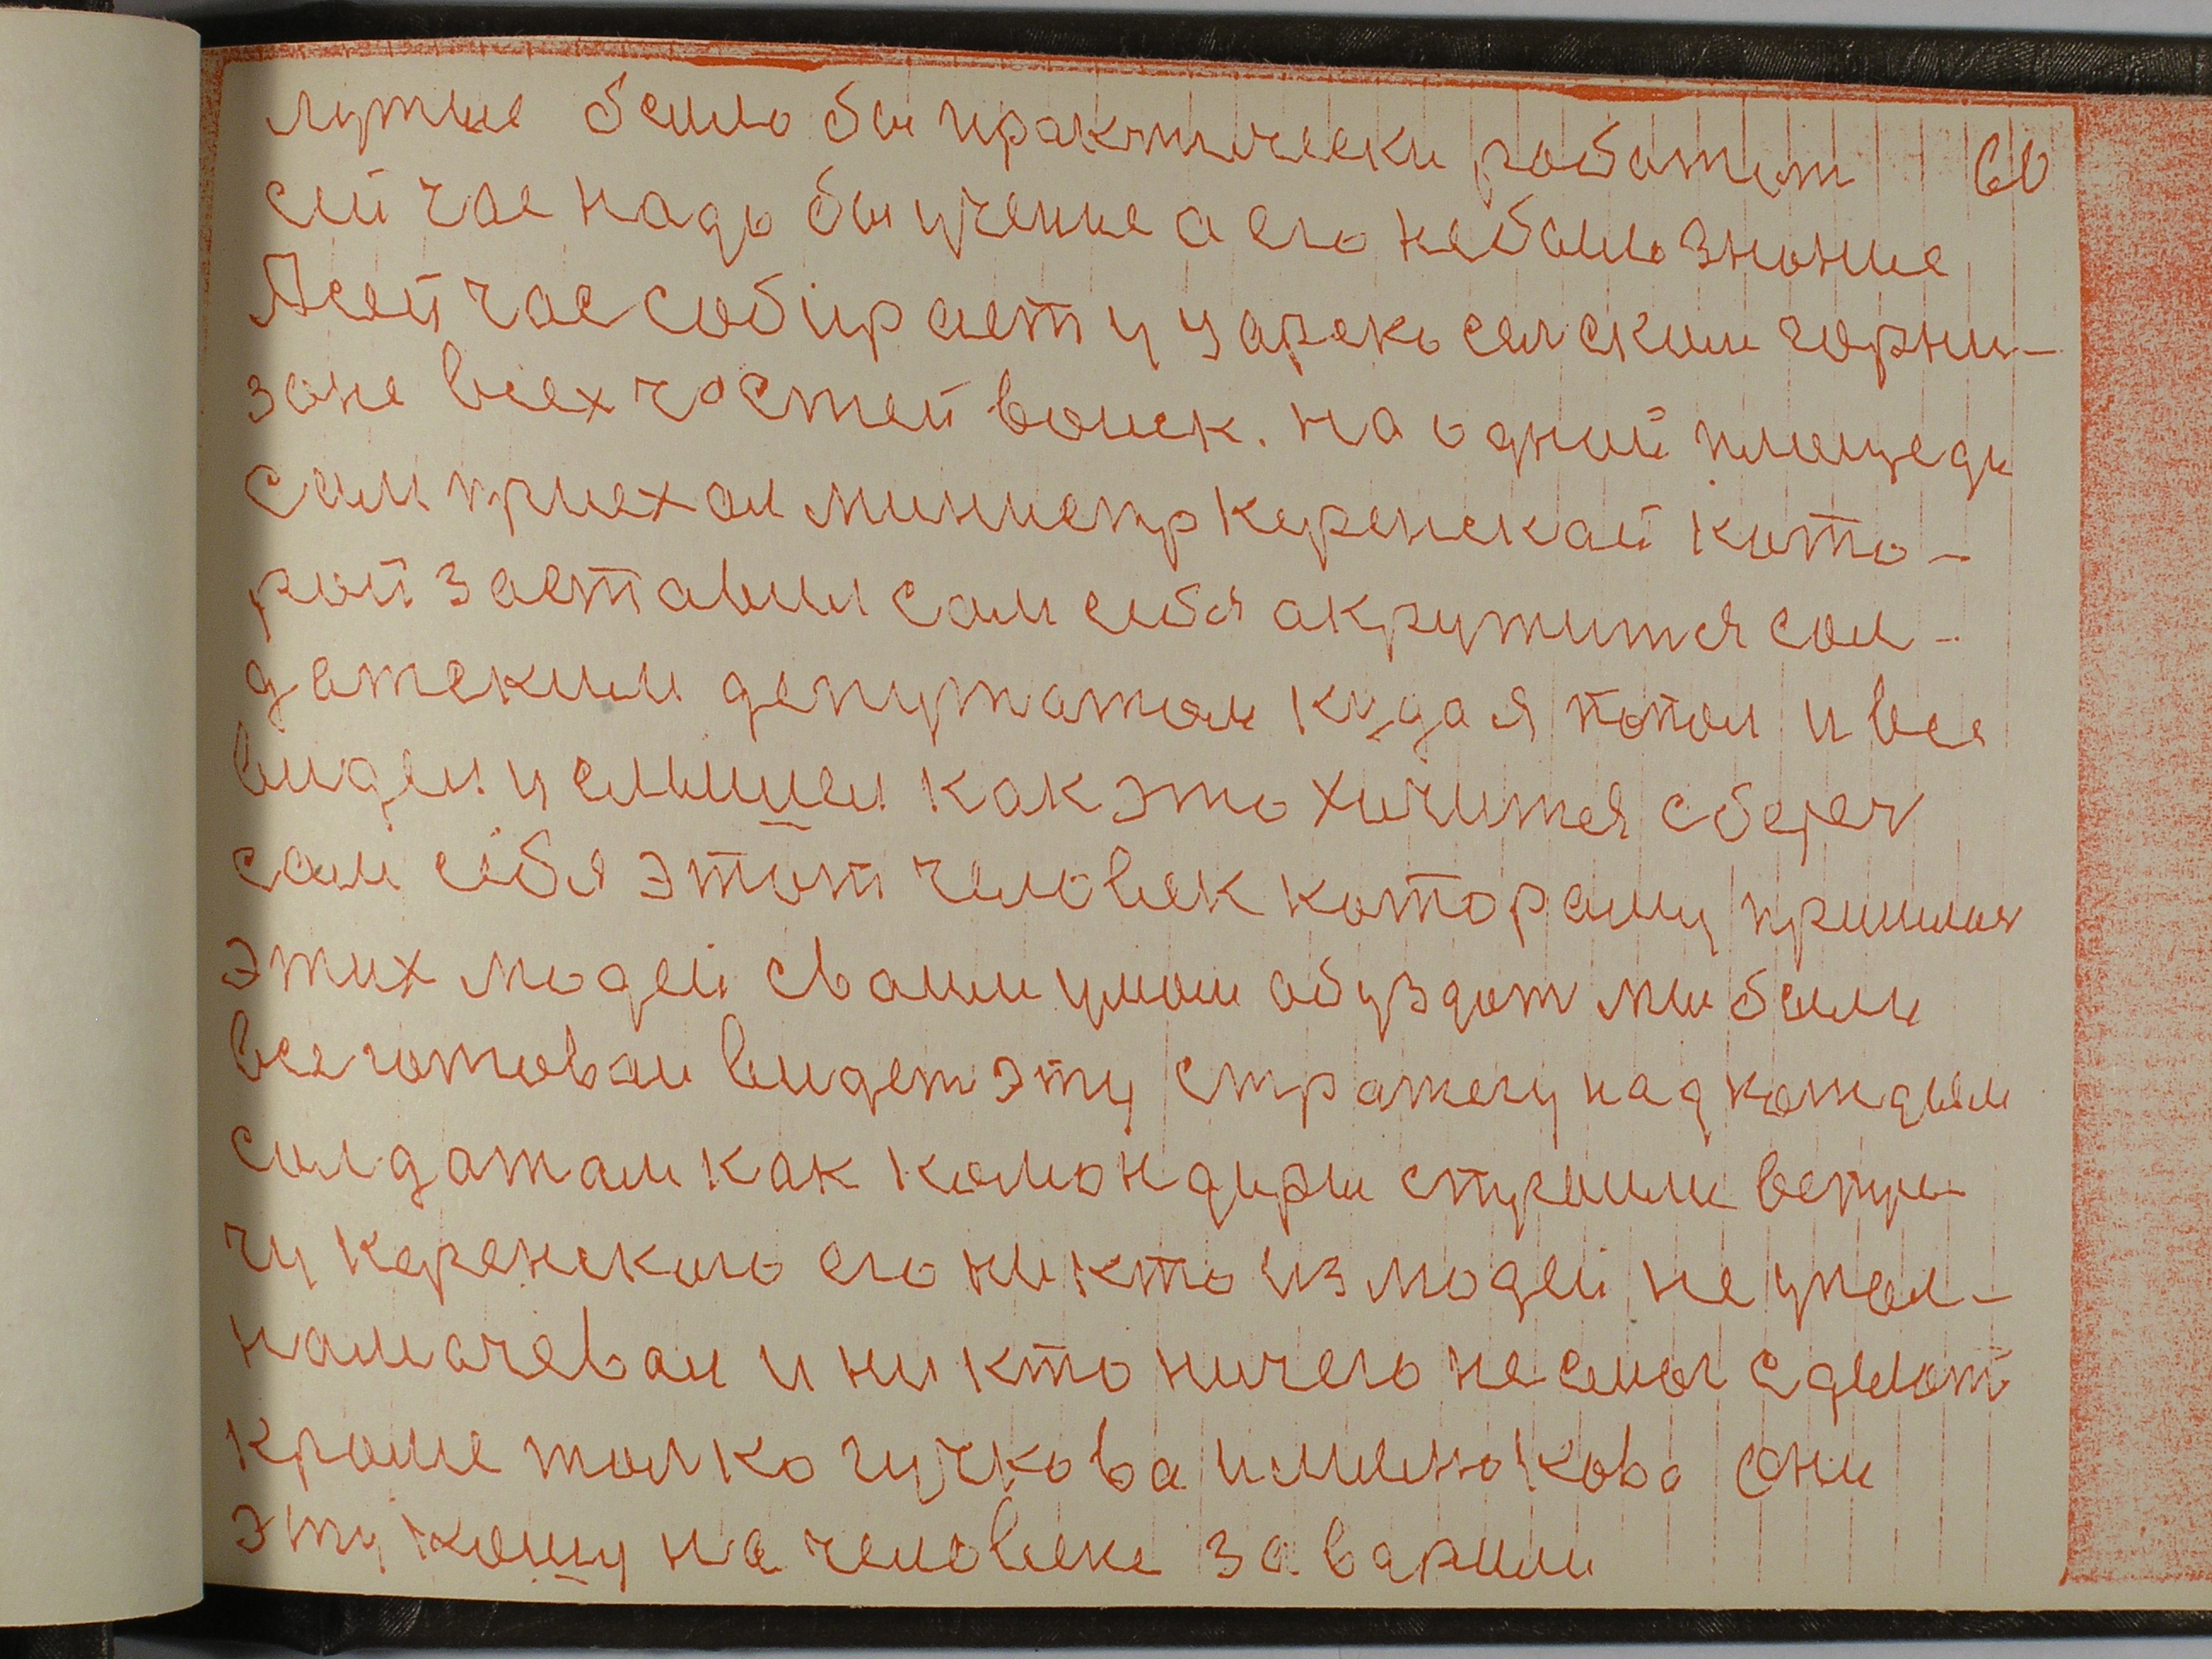 лутше было бы практически работат 60
сей час надо бы учение а его небыло знание
А сей час собирает у царско селским горни-
зоне всех частей воиск. на одной площеде
сам приехал министр Керенскай кото-
рой заставил сам себя акружится сол-
датским депутатом куда я попал и все
видел и слышел как это хичится сбереч
сам себя этот человек которому пришлоя
этих людей сваим умом обуздат мы были
все готовы видет эту стратегу над кождым
солдатам как комондиры строили встре-
чу Керенского его ни кто из людей не упал-
намачевал и ни кто ничего не смог сделат
кроме толко гучкова и милюкова они
эту кашу на человеке заварили